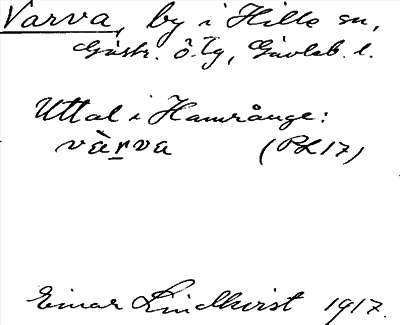 Varva, by i Hille sn,
Gästr. ö. Tg, Gävleb. l.
Uttal i Hamrånge:
vàrva (PL 17)
Einar Lindkvist 1917.